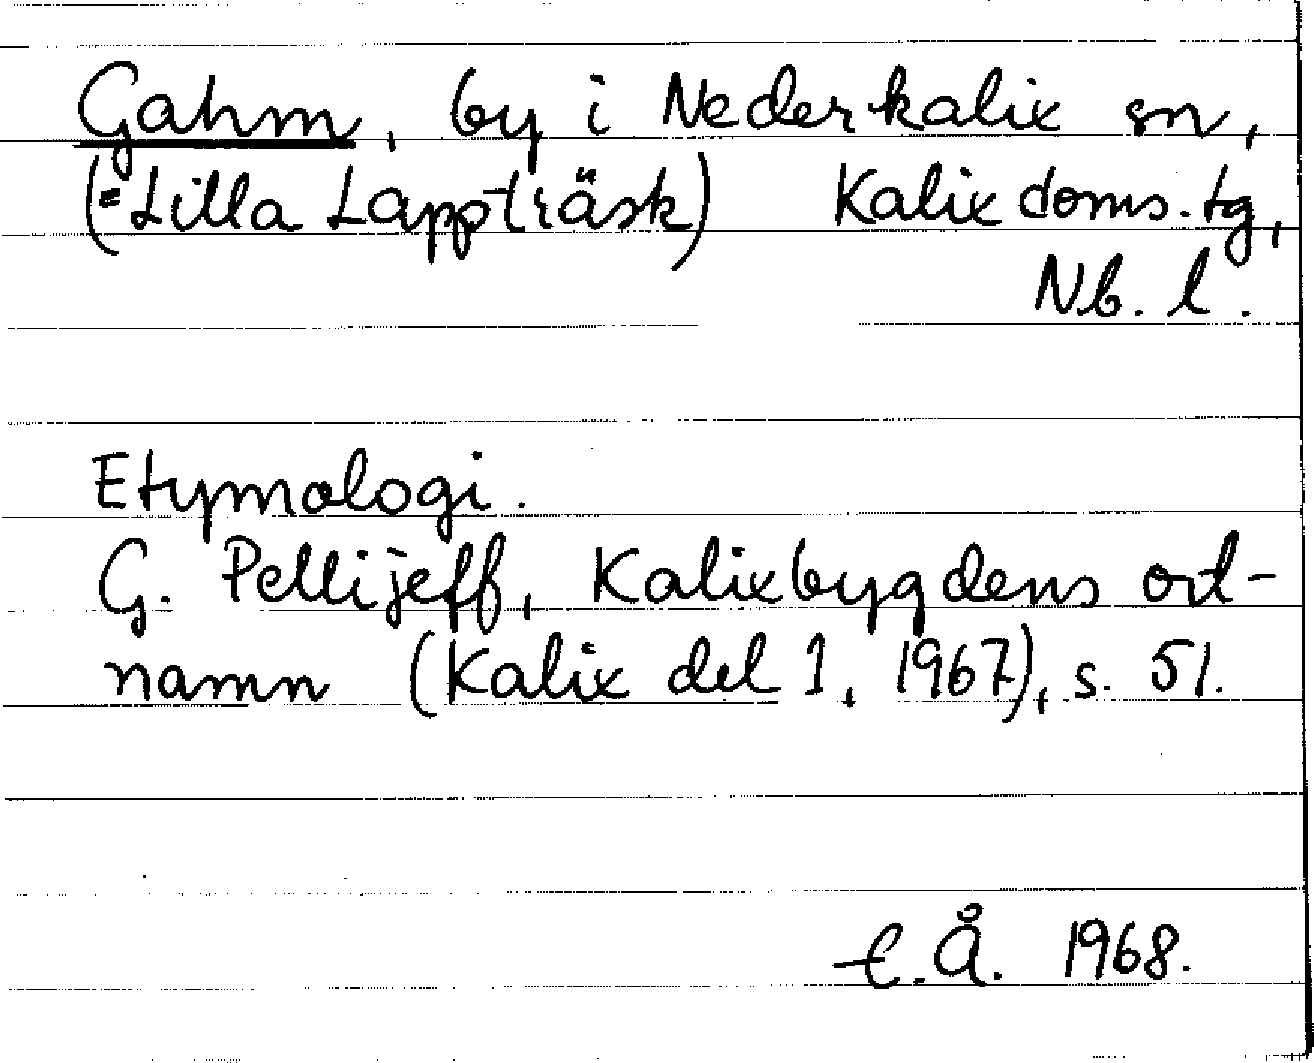 Gahm, by i Nederkalix sn,
(=Lilla Lappträsk) Kalix doms.tg,
Nb. l.
Etymologi.
G. Pellijeff, Kalixbygdens ort-
namn (Kalix del 1, 1967), s. 51.
Å. 1968.